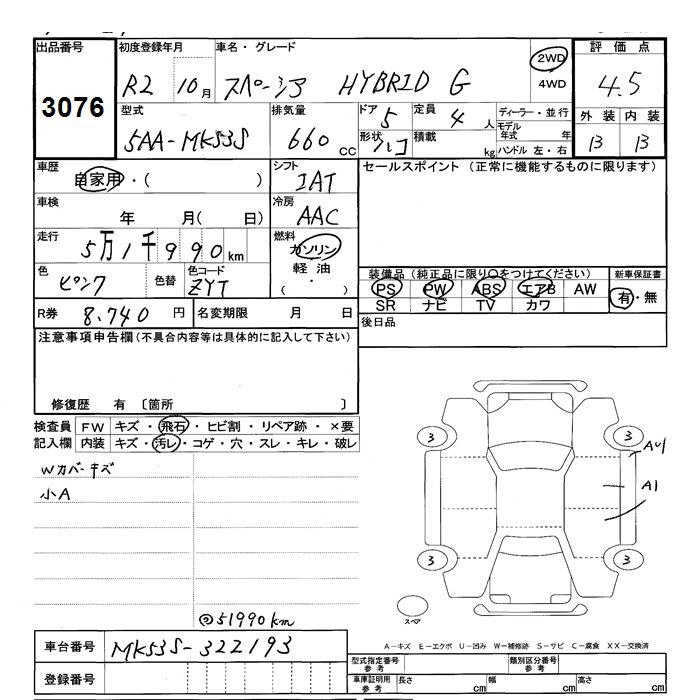 出品番号 初度登録年月 車名・グレード 評価点
3076 R2 10月 スペーシア HYBRID G 2WD 4WD 4.5
型式 排気量 ドア 定員 ディーラー・並行 外装 内装
5AA-MK53S 660cc 5 4人 モデル年式 年 B B
形状 積載 kg ハンドル 左・右
車歴 自家用・( ) シフト IAT セールスポイント (正常に機能するものに限ります)
車検 年 月( 日) 冷房 AAC
走行 5万1千990km 燃料 ガソリン 軽油 ・ ( )
色 ピンク 色替 色コード ZYT
装備品(純正品に限り○をつけてください) 新車保証書
PS PW ABS エアB AW 有・無
SR ナビ TV カワ
R券 8.740円 名変期限 月 日 後日品
注意事項申告欄(不具合内容等は具体的に記入して下さい)
修復歴 有 〔箇所 〕
検査員 FW キズ・飛石・ヒビ割・リペア跡・×要
記入欄 内装 キズ・汚レ・コゲ・穴・スレ・キレ・破レ
Wカバーキズ
小A
3 3
AU1
A1
3 3
スペア
@51990km
A-キズ E-エクボ U-凹み W-補修跡 S-サビ C-腐食 XX-交換済
車台番号 MK53S-322193
登録番号
型式指定番号 参考 類別区分番号 参考
車庫証明用 参考 長さ cm 幅 cm 高さ cm